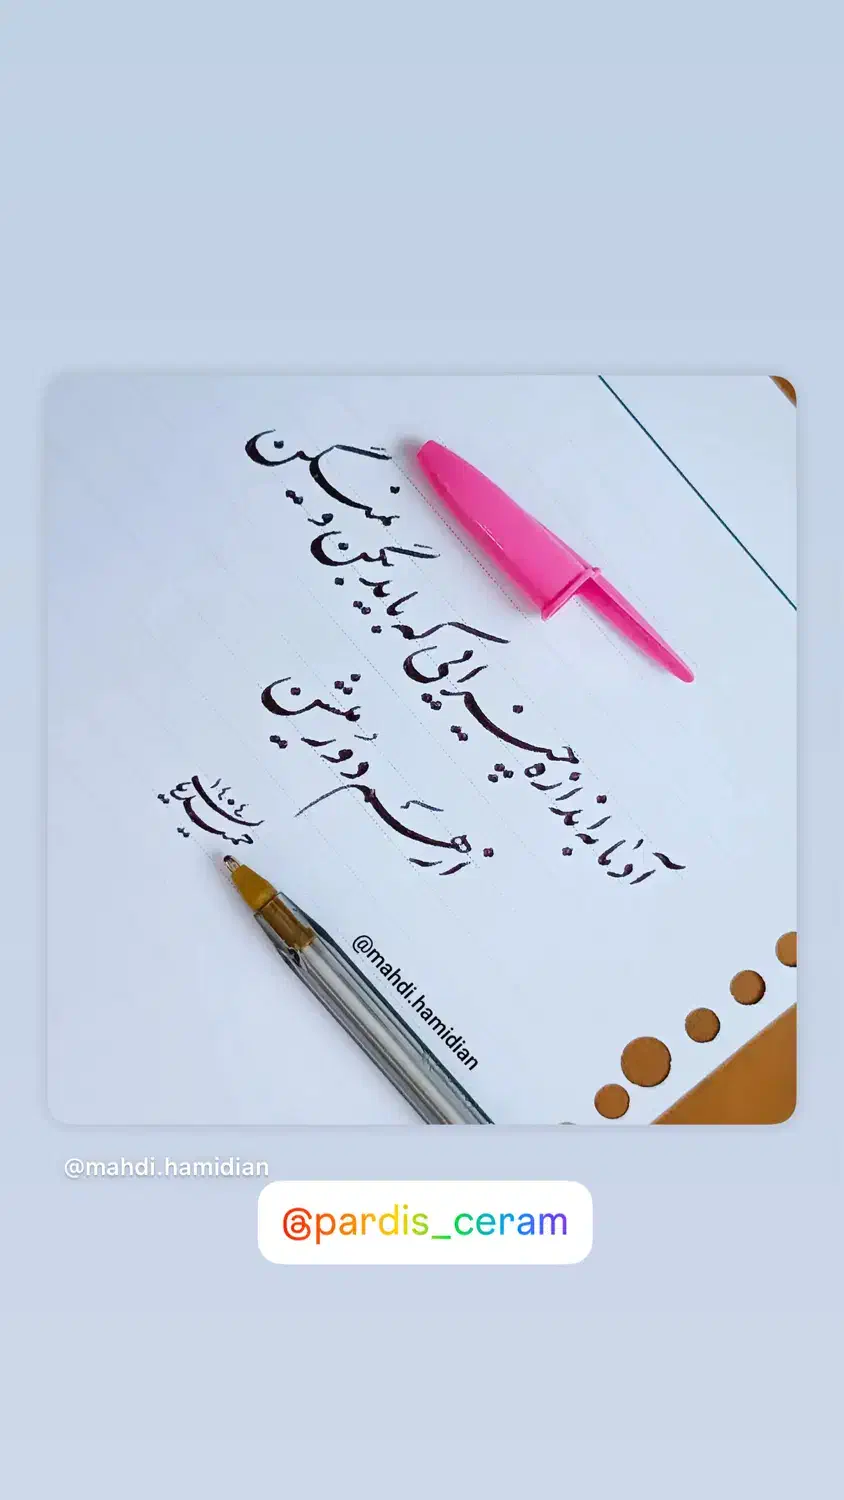 آدما به اندازه چیزایی که باید بگن و نمیگن
از هم دور میشن
حمیدیان
۱۴۰۴
@mahdi.hamidian
@mahdi.hamidian
@pardis_ceram